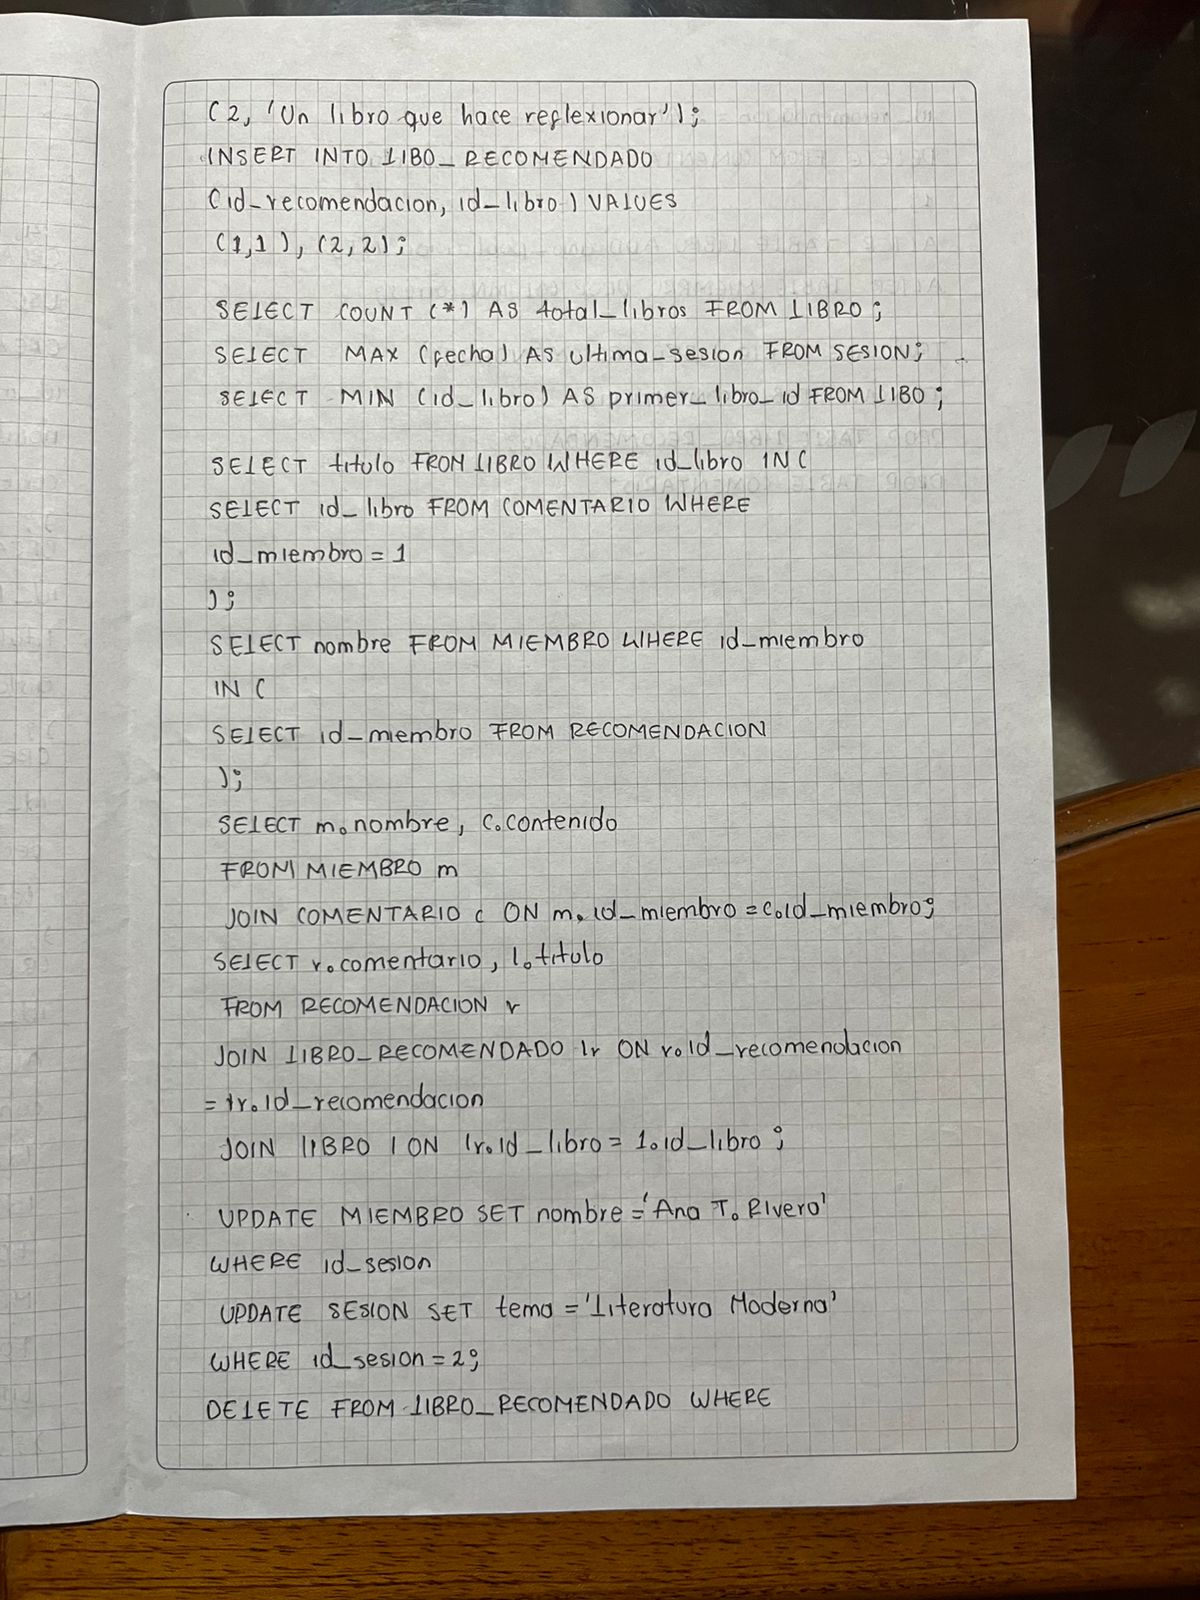 (2, 'Un libro que hace reflexionar');
INSERT INTO LIBO_RECOMENDADO
(id_recomendacion, id_libro) VALUES
(1,1), (2,2);
SELECT COUNT (*) AS total_libros FROM LIBRO;
SELECT MAX (fecha) AS ultima_sesion FROM SESION;
SELECT MIN (id_libro) AS primer_libro_id FROM LIBO;
SELECT titulo FROM LIBRO WHERE id_libro IN (
SELECT id_libro FROM COMENTARIO WHERE
id_miembro = 1
);
SELECT nombre FROM MIEMBRO WHERE id_miembro
IN (
SELECT id_miembro FROM RECOMENDACION
);
SELECT m.nombre, c.contenido
FROM MIEMBRO m
JOIN COMENTARIO c ON m.id_miembro = c.id_miembro;
SELECT r.comentario, l.titulo
FROM RECOMENDACION r
JOIN LIBRO_RECOMENDADO lr ON r.id_recomendacion
= lr.id_recomendacion
JOIN LIBRO l ON lr.id_libro = l.id_libro;
UPDATE MIEMBRO SET nombre = 'Ana T. Rivero'
WHERE id_sesion
UPDATE SESION SET tema = 'Literatura Moderna'
WHERE id_sesion = 2;
DELETE FROM LIBRO_RECOMENDADO WHERE